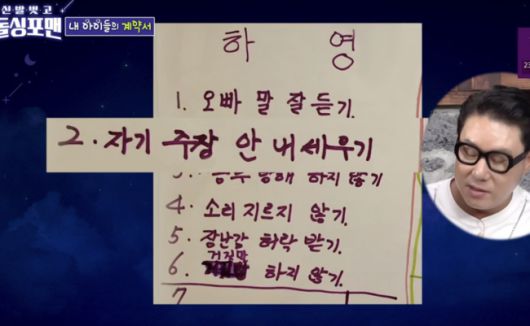 신발벗고
돌싱포맨
내 아이들의 계약서
하 영
1. 오빠 말 잘 듣기.
2. 자기 주장 안 내세우기
3. 공부 방해 하지 않기
4. 소리 지르지 않기.
5. 장난감 허락 받기.
거짓말
6. 하지 않기.
7
23